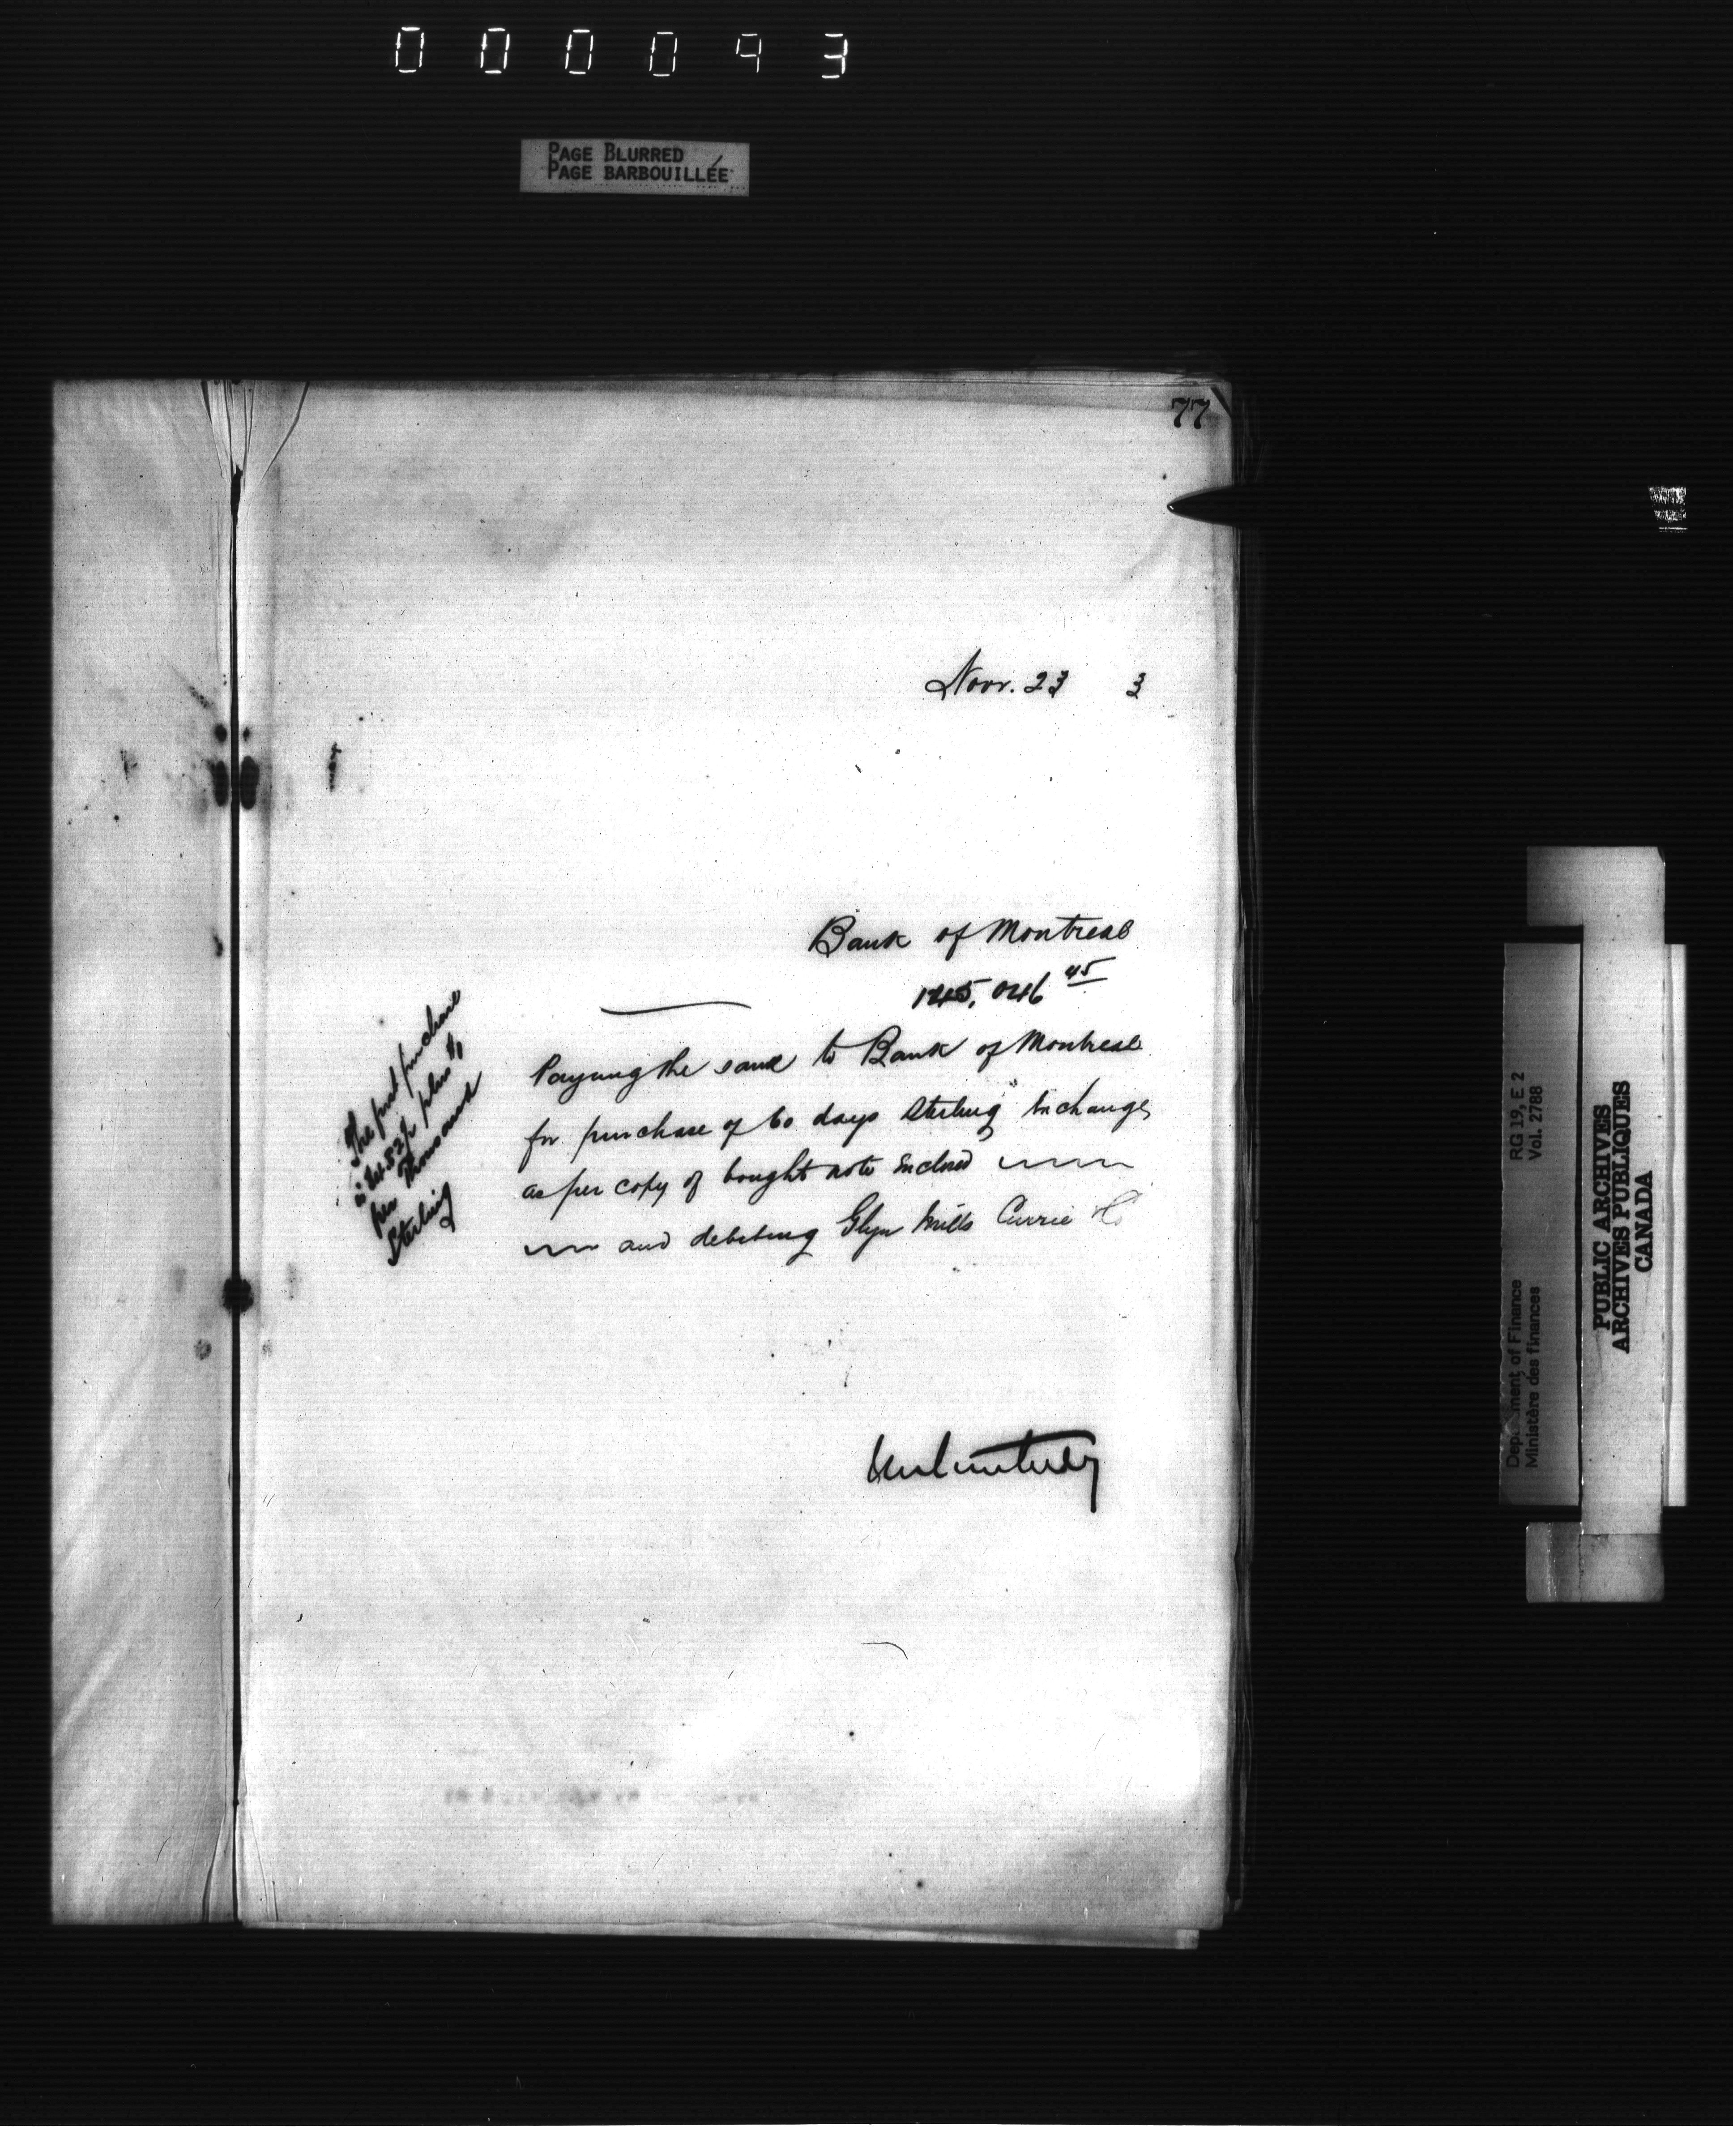 000093
PAGE BLURRED
PAGE BARBOUILLÉE
77
Novr. 23 3
Bank of Montreal
145,046 45
Paying the same to Bank of Montreal
for purchase of 60 days Sterling Exchange
as per copy of bought note enclosed
and debiting Glyn Mills Currie & Co
The
purchase
is
plus
per Thousand
Sterling
Department of Finance
Ministère des finances
RG 19, E 2
Vol. 2788
PUBLIC ARCHIVES
ARCHIVES PUBLIQUES
CANADA